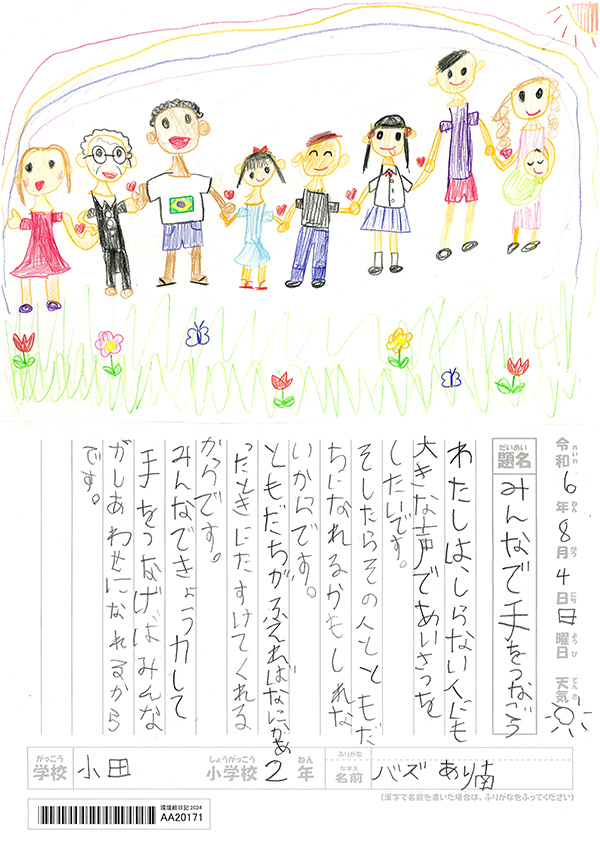 令和6年8月4日日曜日 天気
れいわ ねん がつ にち ようび てんき
だいめい
題名 みんなで手をつなごう
わたしは、しらない人にも
大きな声であいさつを
したいです。
そしたらその人とともだ
ちになれるかもしれな
いからです。
ともだちがふえればなにかあ
ったときにたすけてくれる
からです。
みんなできょう力して
手をつなげばみんな
がしあわせになれるから
です。
がっこう しょうがっこう ねん ふりがな なまえ
学校 小田 小学校 2 年 名前 バズ あり南
(漢字で名前を書いた場合は、ふりがなをふってください)
環境絵日記 2024
AA20171